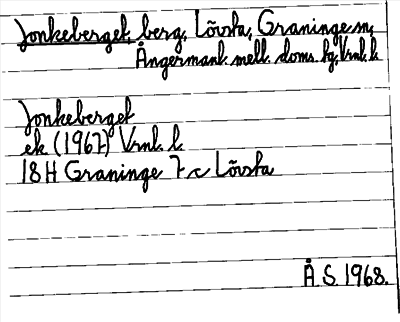 Jonkeberget, berg, Lövsta, Graninge sn,
Ångermanl. mell. doms. fg, Vrnl. l.
Jonkeberget
ek. (1967) Vrnl. l.
18H Graninge 7 c Lövsta
Å S 1968.